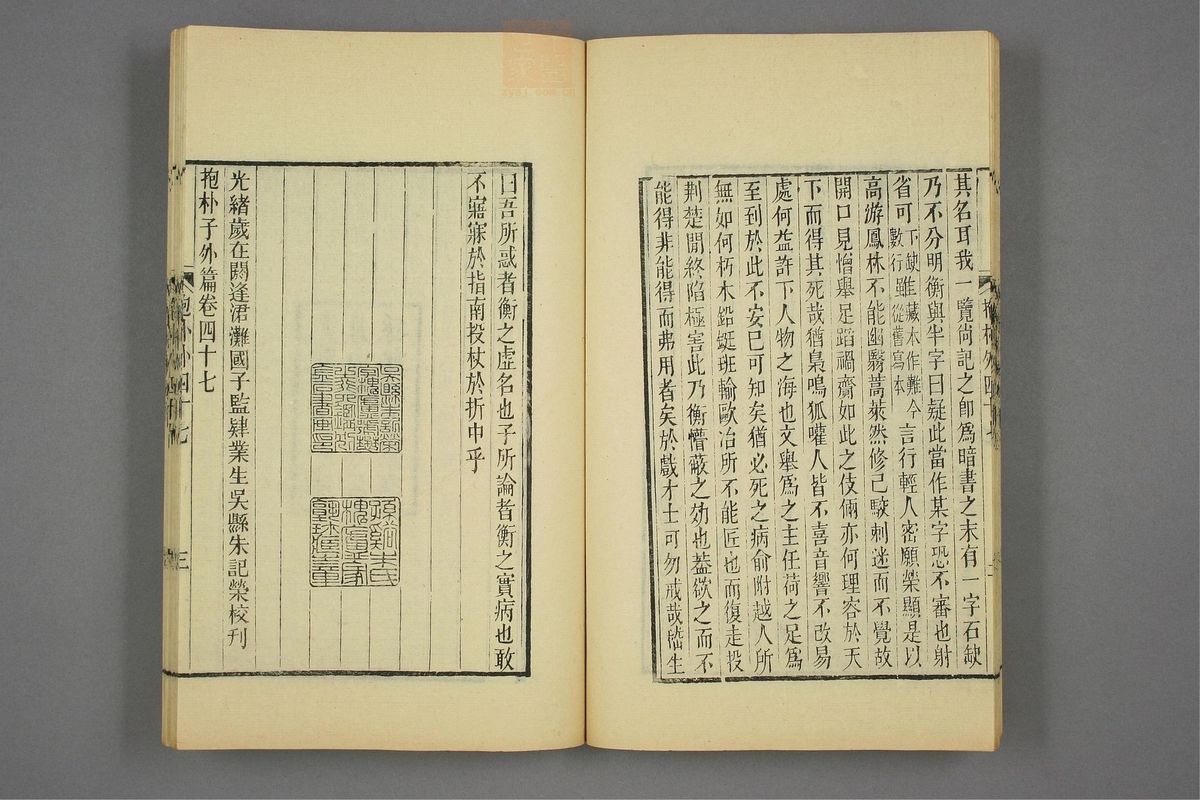 其名耳我一覽尙記之卽爲暗書之末有一字石缺
乃不分明衡與半字曰疑此當作某字恐不審也射
省可下缺數行雖藏本作難今從舊寫本言行輕人密願榮顯是以
高游鳳林不能幽翳蒿萊然修己駮刺迷而不覺故
開口見憎舉足蹈禍齎如此之伎倆亦何理容於天
下而得其死哉猶梟鳴狐嚾人皆不喜音響不改易
處何益許下人物之海也文舉爲之主任荷之足爲
至到於此不安已可知矣猶必死之病俞附越人所
無如何朽木鉛鋌班輸歐冶所不能匠也而復走投
荆楚閒終陷極害此乃衡懵蔽之効也葢欲之而不
能得非能得而弗用者矣於戲才士可勿戒哉嵇生
曰吾所惑者衡之虛名也子所論者衡之實病也敢
不寤寐於指南投杖於折中乎
光緒歲在閼逢涒灘國子監肄業生吳縣朱記榮校刊
抱朴子外篇卷四十七
三